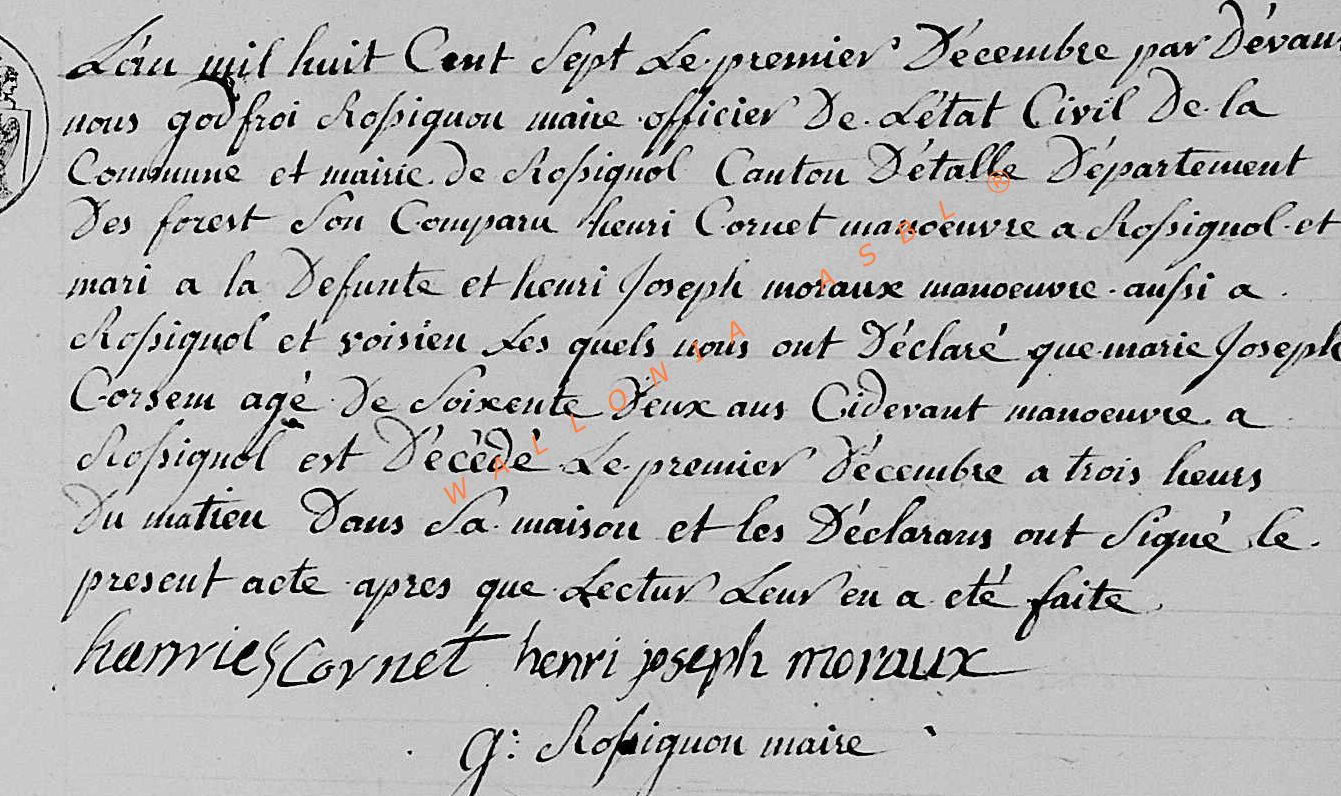 L'an mil huit Cent Sept Le premier Décembre par Dévan
nous godfroi Rossignon maire officier De L'état Civil De la
Commune et mairie De Rossignol Canton D'étalle Département
Des forest Son Comparu henri Cornet manoeuvre a Rossignol et
mari a la Defunte et henri Joseph moraux manoeuvre aussi a
Rossignol et voisien Les quels nous ont Déclaré que marie Joseph
Corsem agé De Soixente Deux ans Cidevant manoeuvre a
Rossignol est Décédé Le premier Décembre a trois heurs
Du matien Dans Sa maison et les Déclarans ont Signé le
present acte apres que Lectur Leur en a eté faite
Cornet henri joseph moraux
g: Rossignon maire
WALLONIA ASBL ®